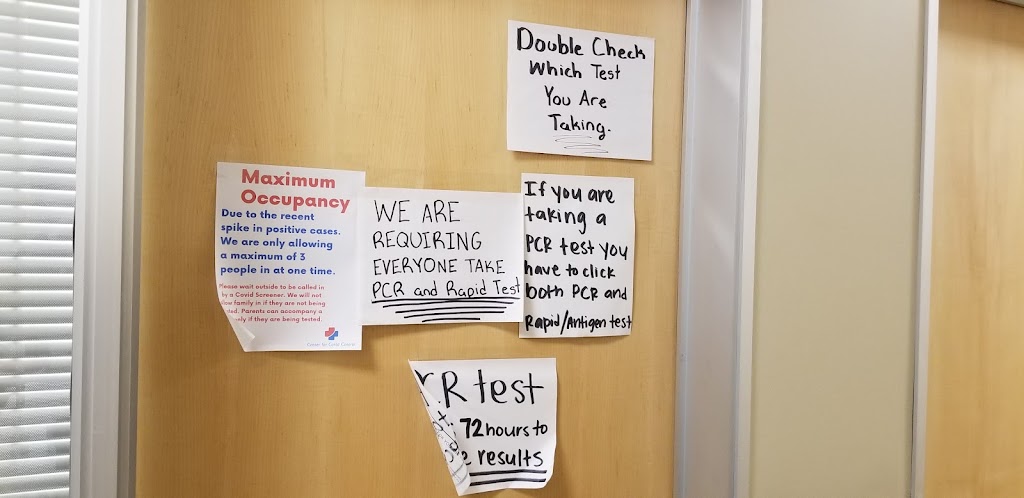 Double Check
Which Test
You Are
Taking.
Maximum
Occupancy
Due to the recent
spike in positive cases.
We are only allowing
a maximum of 3
people in at one time.
Please wait outside to be called in
by a Covid Screener. We will not
family in if they are not being
Parents can accompany a
if they are being tested.
WE ARE
REQUIRING
EVERYONE TAKE
PCR and Rapid Test
If you are
taking a
PCR test you
have to click
both PCR and
Rapid/Antigen test
CR test
72 hours to
results